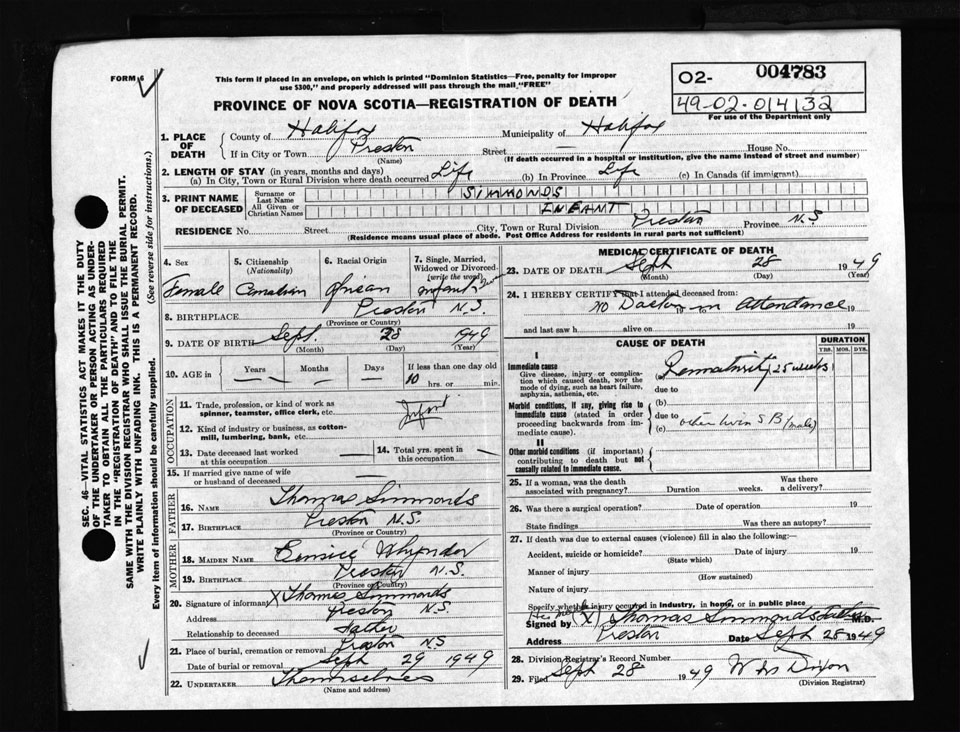 FORM 6
This form if placed in an envelope, on which is printed "Dominion Statistics—Free, penalty for improper
use $300," and properly addressed will pass through the mail "FREE"
O2- 004783
49-02-014132
For use of the Department only
PROVINCE OF NOVA SCOTIA—REGISTRATION OF DEATH
SEC. 46—VITAL STATISTICS ACT MAKES IT THE DUTY
OF THE UNDERTAKER OR PERSON ACTING AS UNDER-
TAKER TO OBTAIN ALL THE PARTICULARS REQUIRED
IN THE "REGISTRATION OF DEATH" AND TO FILE THE
SAME WITH THE DIVISION REGISTRAR WHO SHALL ISSUE THE BURIAL PERMIT.
WRITE PLAINLY WITH UNFADING INK. THIS IS A PERMANENT RECORD.
Every item of information should be carefully supplied. (See reverse side for instructions.)
1. PLACE OF DEATH
County of Halifax Municipality of Halifax
If in City or Town Preston Street — House No.
(Name) (If death occurred in a hospital or institution, give the name instead of street and number)
2. LENGTH OF STAY (in years, months and days)
(a) In City, Town or Rural Division where death occurred Life (b) In Province Life (c) In Canada (if immigrant)
3. PRINT NAME OF DECEASED
Surname or Last Name SIMMONDS
All Given or Christian Names INFANT
RESIDENCE No. Street City, Town or Rural Division Preston Province N.S
(Residence means usual place of abode. Post Office Address for residents in rural parts not sufficient)
4. Sex Female
5. Citizenship (Nationality) Canadian
6. Racial Origin African
7. Single, Married, Widowed or Divorced (write the word) Infant
8. BIRTHPLACE Preston N.S.
(Province or Country)
9. DATE OF BIRTH Sept. 28 1949
(Month) (Day) (Year)
10. AGE in Years — Months — Days — If less than one day old
10 hrs. or min.
OCCUPATION
11. Trade, profession, or kind of work as
spinner, teamster, office clerk, etc. Infant
12. Kind of industry or business, as cotton-
mill, lumbering, bank, etc.
13. Date deceased last worked
at this occupation
14. Total yrs. spent in
this occupation
15. If married give name of wife
or husband of deceased —
FATHER
16. NAME Thomas Simmonds
17. BIRTHPLACE Preston N.S.
MOTHER
18. MAIDEN NAME Eunice
19. BIRTHPLACE Preston N.S.
(Province or Country)
20. Signature of informant X Thomas Simmonds
Address Preston N.S.
Relationship to deceased Father
21. Place of burial, cremation or removal Preston NS
Date of burial or removal Sept 29 1949
22. UNDERTAKER Themselves
(Name and address)
MEDICAL CERTIFICATE OF DEATH
23. DATE OF DEATH Sept 28 1949
(Month) (Day) (Year)
24. I HEREBY CERTIFY that I attended deceased from:
no Doctor 19 to in attendance 19
and last saw h alive on 19
CAUSE OF DEATH
DURATION
YRS. MOS. DYS.
I
Immediate cause
Give disease, injury or complica-
tion which caused death, nor the
mode of dying, such as heart failure,
asphyxia, asthenia, etc.
Prematurity 25 weeks
due to
Morbid conditions, if any, giving rise to
immediate cause (stated in order
proceeding backwards from im-
mediate cause).
(b)
due to
(c) other twin SB (male)
II
Other morbid conditions (if important)
contributing to death but not
causally related to immediate cause.
25. If a woman, was the death
associated with pregnancy? Duration weeks. Was there
a delivery?
26. Was there a surgical operation? Date of operation 19
State findings Was there an autopsy?
27. If death was due to external causes (violence) fill in also the following:—
Accident, suicide or homicide? Date of injury 19
(State which)
Manner of injury
(How sustained)
Nature of injury
Specify whether injury occurred in industry, in home, or in public place
Signed by (X) Thomas Simmonds M.D.
Address Preston Date Sept 28 1949
28. Division Registrar's Record Number
29. Filed Sept 28 1949 Dixon
(Division Registrar)